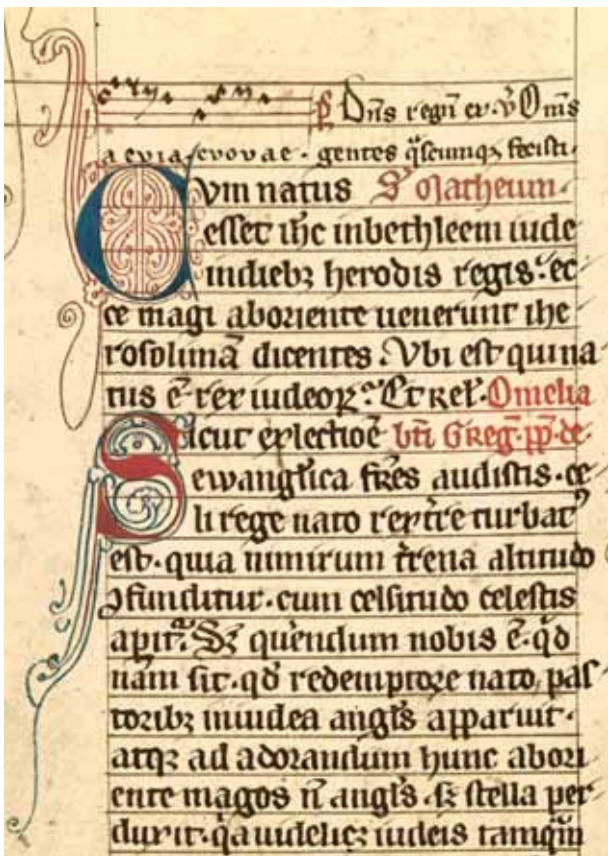 ꝑ Dn̄s regn̄ eꝟ. v̄ Om̄s
aevia evovae · gentes q̄scumqꝫ fecisti·
Cvm natus S. Matheum·
esset ih̄c inbethleem iude
indiebꝫ herodis regis. ec
ce magi aboriente uenerunt ihe
rosolimā dicentes. Vbi est quina
tus ē rex iudeoꝝ. Et rel̄. Omelia
Sicut exlectioē bt̄i Greḡ. pp̄. de
ewangl̄ica fr̄es audistis. ce
li rege nato rex tr̄e turbatꝰ
est. quia nimirum tr̄rena altitudo
ꝯfunditur. cum celsitudo celestis
apit᷑. Sꝫ querendum nobis ē. qd̄
nam sit. qd̄ redemptore nato pas
toribꝫ iniudea angl̄s apparuit.
atqꝫ ad adorandum hunc abori
ente magos n̄ angl̄s. sꝫ stella per
duxit. q̄a uidelicꝫ iudeis tamqm̄